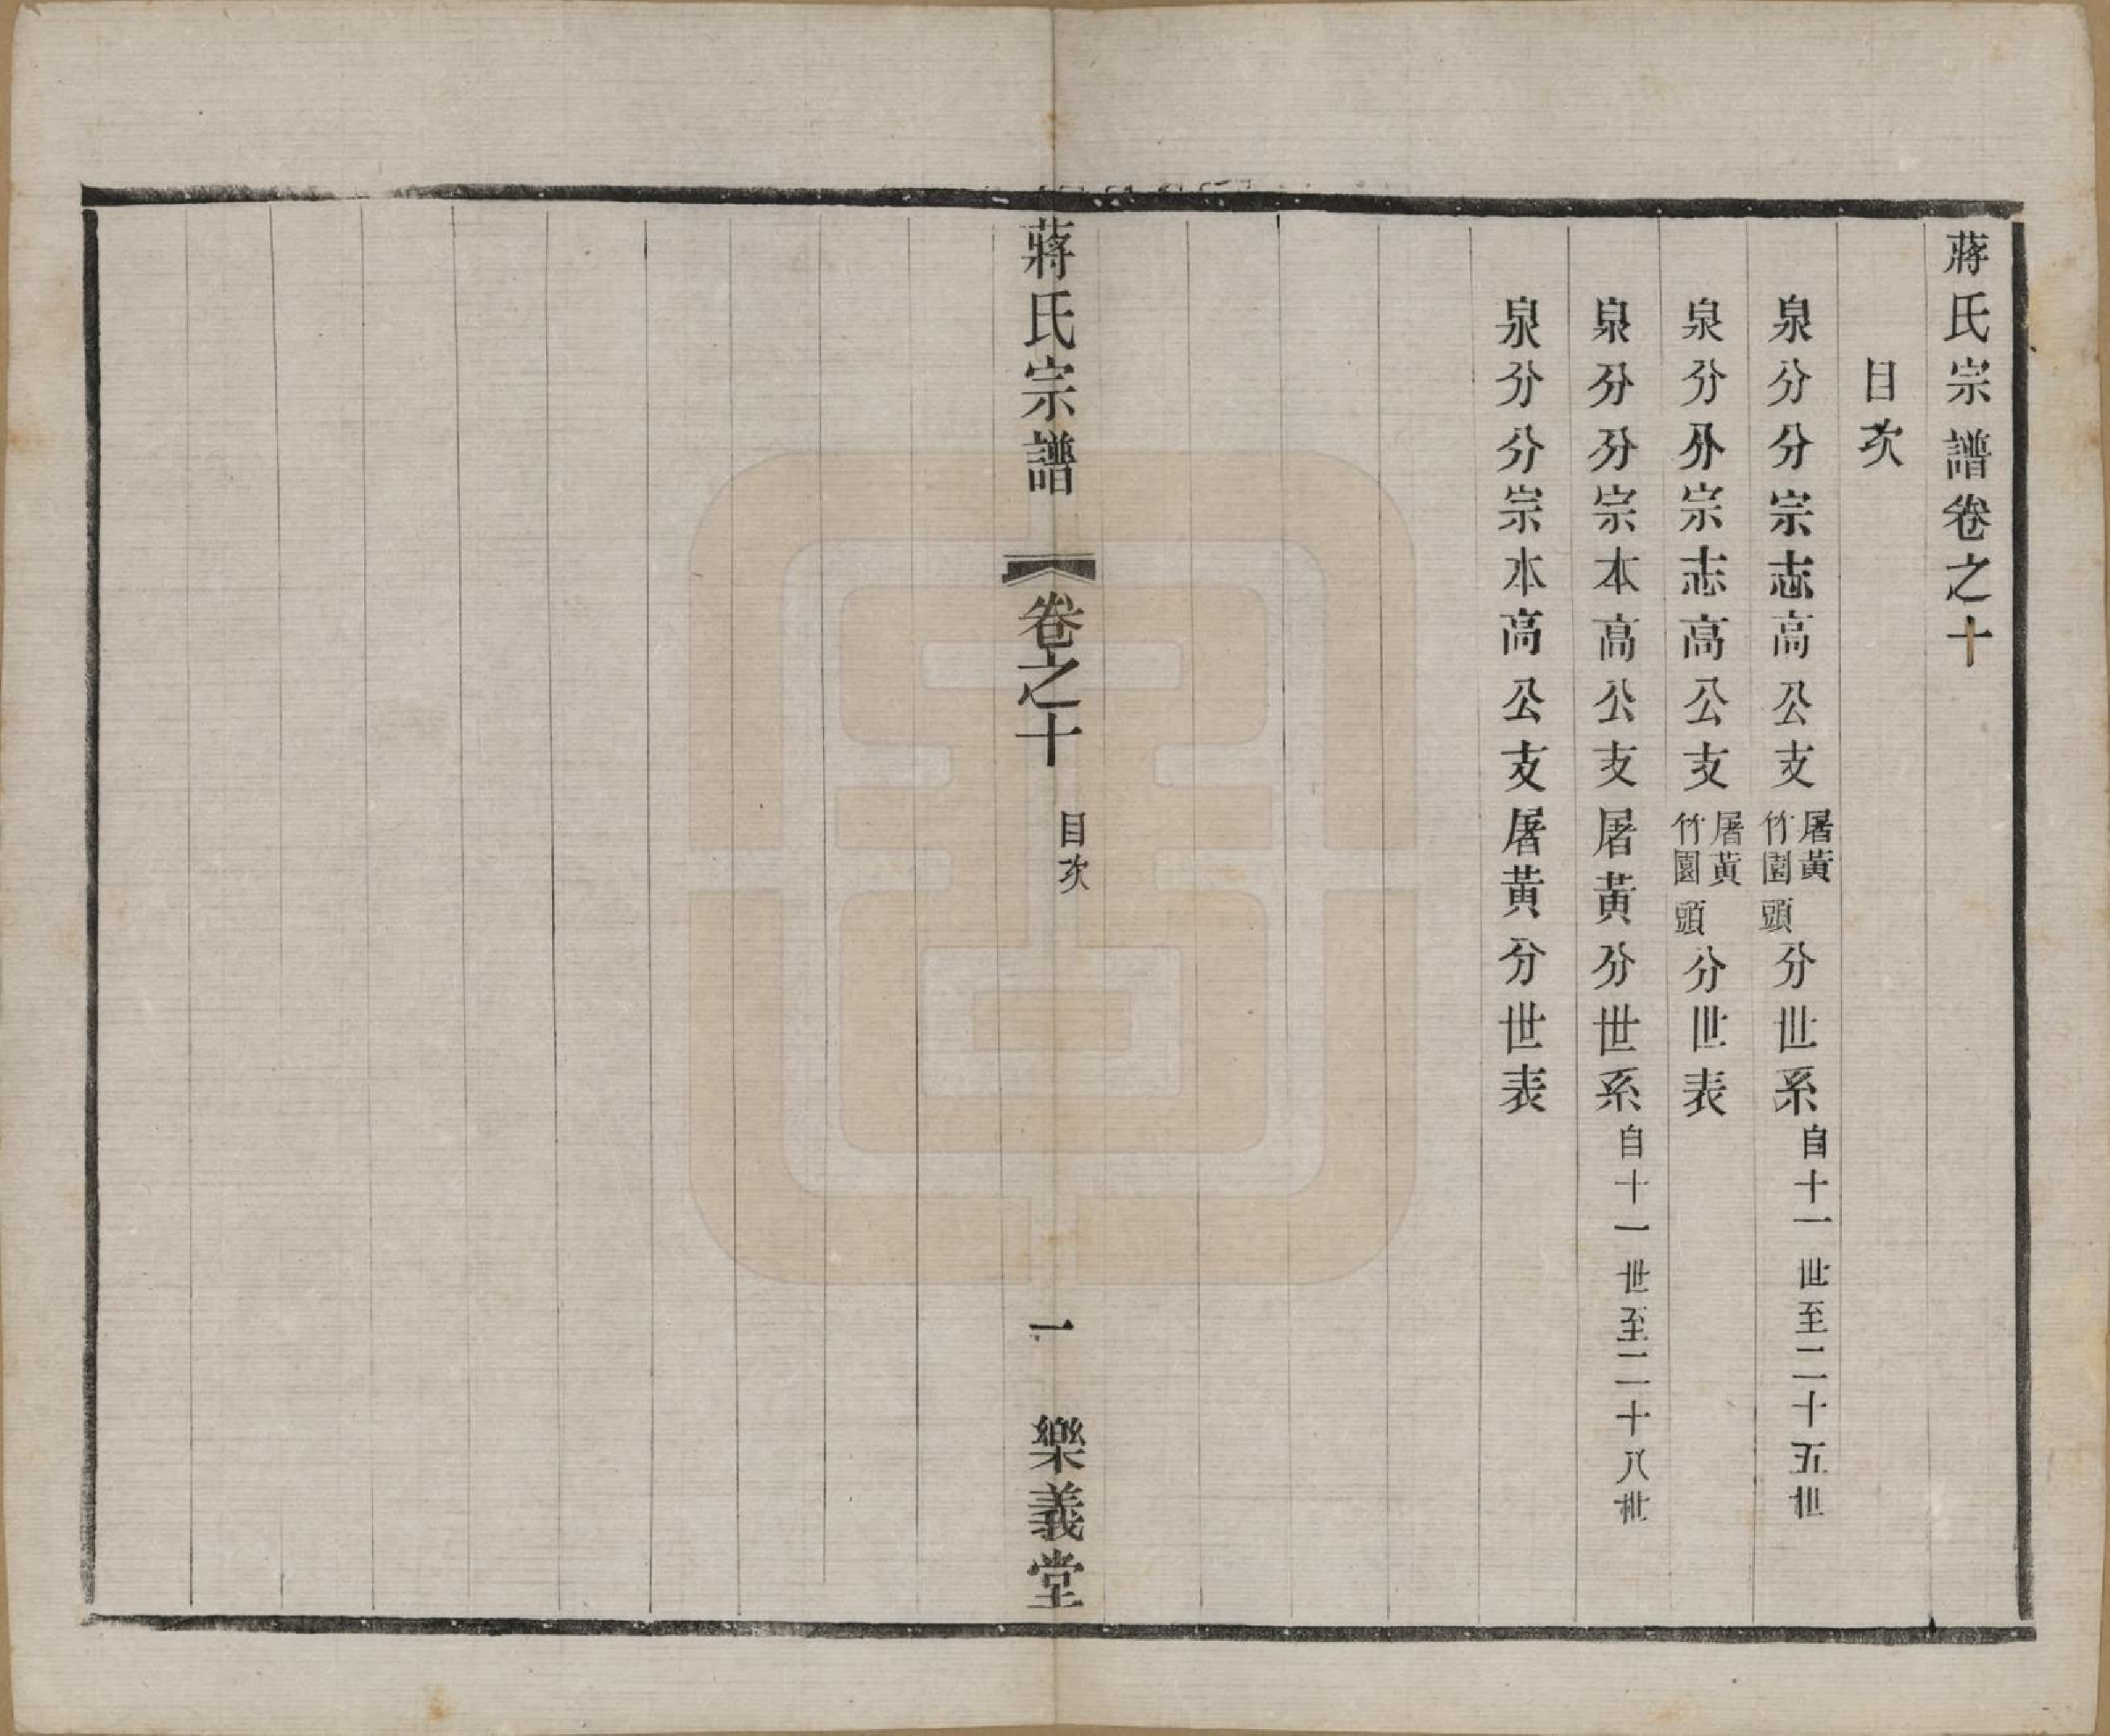 蔣氏宗譜卷之十
目次
泉分分宗志高公支屠黃竹園頭分世系自十一世至二十五世
泉分分宗志高公支屠黃竹園頭分世表
泉分分宗本高公支屠黃分世系自十一世至二十八世
泉分分宗本高公支屠黃分世表
蔣氏宗譜 卷之十 目次 一 樂義堂